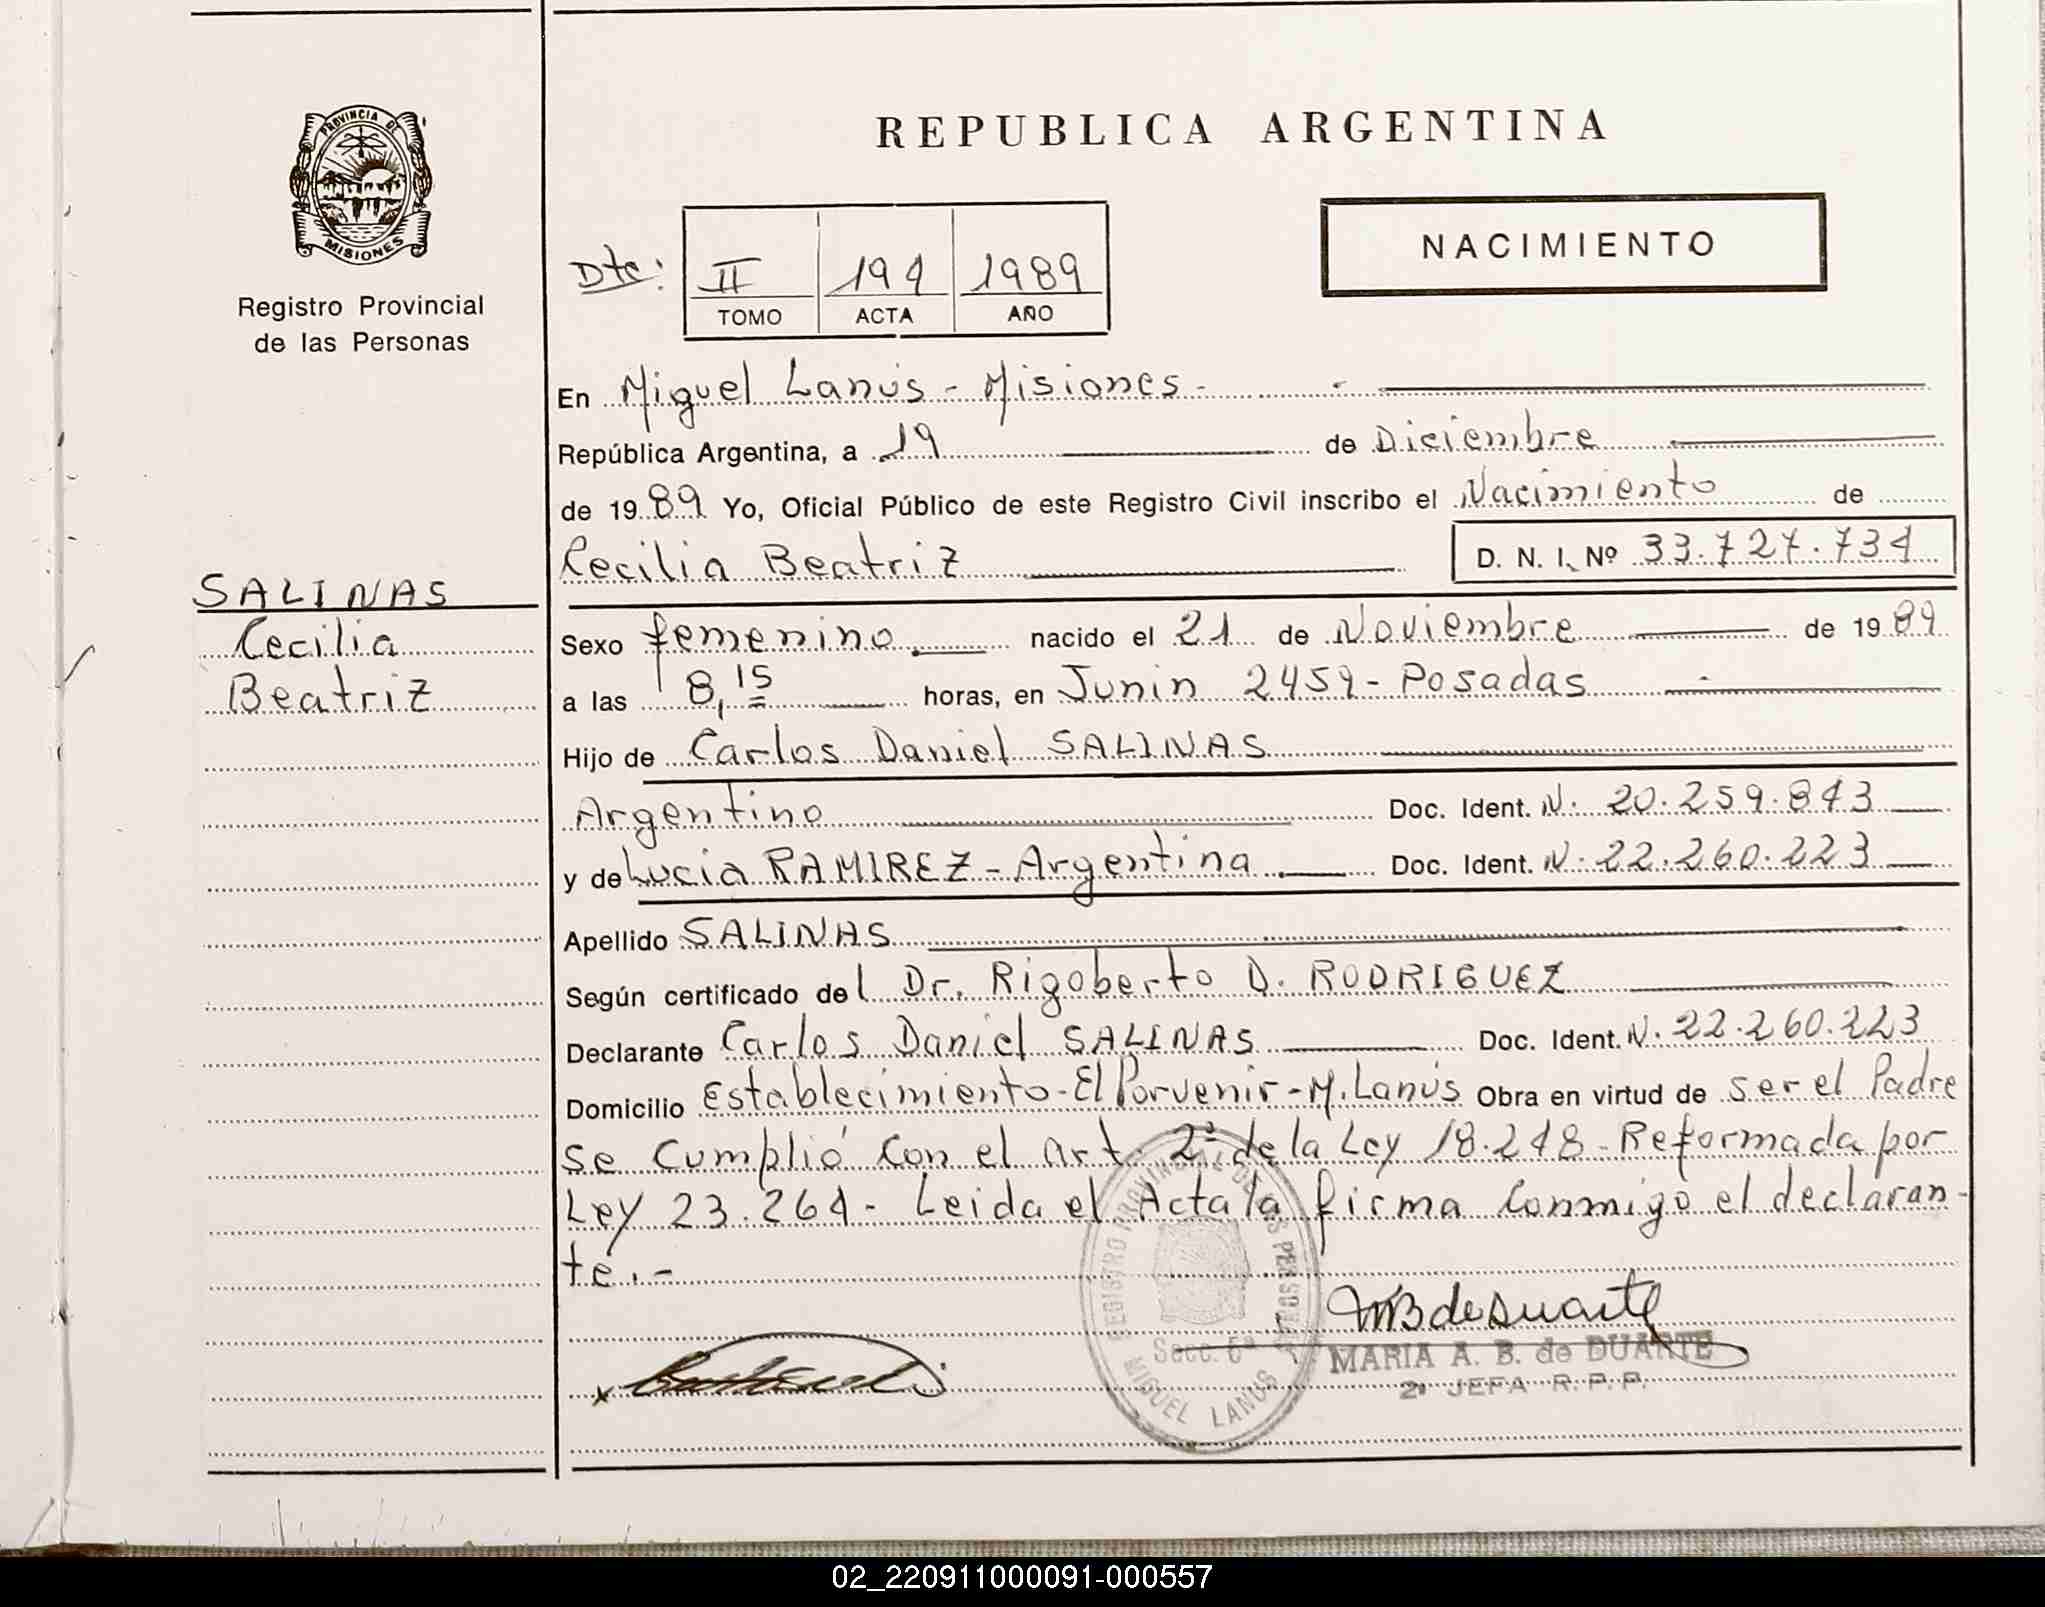 PROVINCIA DE
MISIONES
Registro Provincial
de las Personas
REPUBLICA ARGENTINA
NACIMIENTO
Dto: II 194 1989
TOMO ACTA AÑO
En Miguel Lanús - Misiones -
República Argentina, a 19 de Diciembre
de 1989 Yo, Oficial Público de este Registro Civil inscribo el Nacimiento de
Cecilia Beatriz D. N. I. Nº 33.727.734
SALINAS
Cecilia
Beatriz
Sexo femenino nacido el 21 de Noviembre de 1989
a las 8,15 horas, en Junin 2459 - Posadas
Hijo de Carlos Daniel SALINAS
Argentino Doc. Ident. N. 20.259.843
y de Lucia RAMIREZ - Argentina Doc. Ident. N. 22.260.223
Apellido SALINAS
Según certificado del Dr. Rigoberto D. RODRIGUEZ
Declarante Carlos Daniel SALINAS Doc. Ident. N. 22.260.223
Domicilio Establecimiento - El Porvenir - M. Lanús Obra en virtud de ser el Padre
se Cumplió con el art. 2º de la Ley 18.248 - Reformada por
Ley 23.264 - Leida el Acta la firma Conmigo el declaran-
te. -
REGISTRO PROVINCIAL DE LAS PERSONAS
Secc. 5ª
MIGUEL LANUS
MB de Duarte
MARIA A. B. de DUARTE
2ª JEFA R. P. P.
02_220911000091-000557